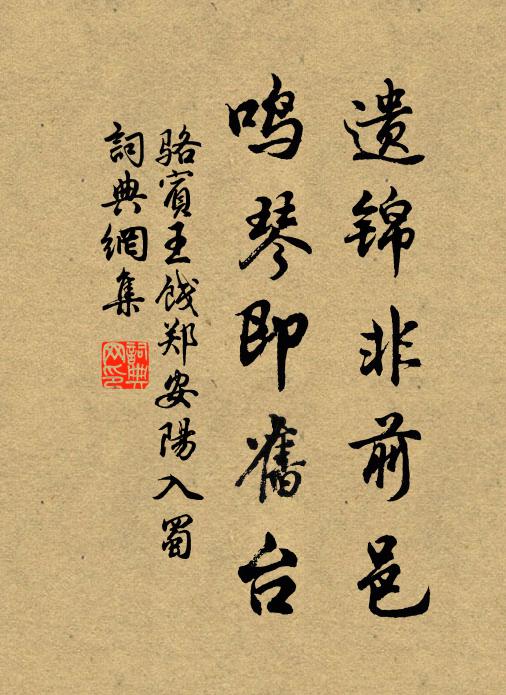 遗锦非前邑
鸣琴即舊台
骆賓王 饯郑安陽入蜀
詞典網集
詞典网印